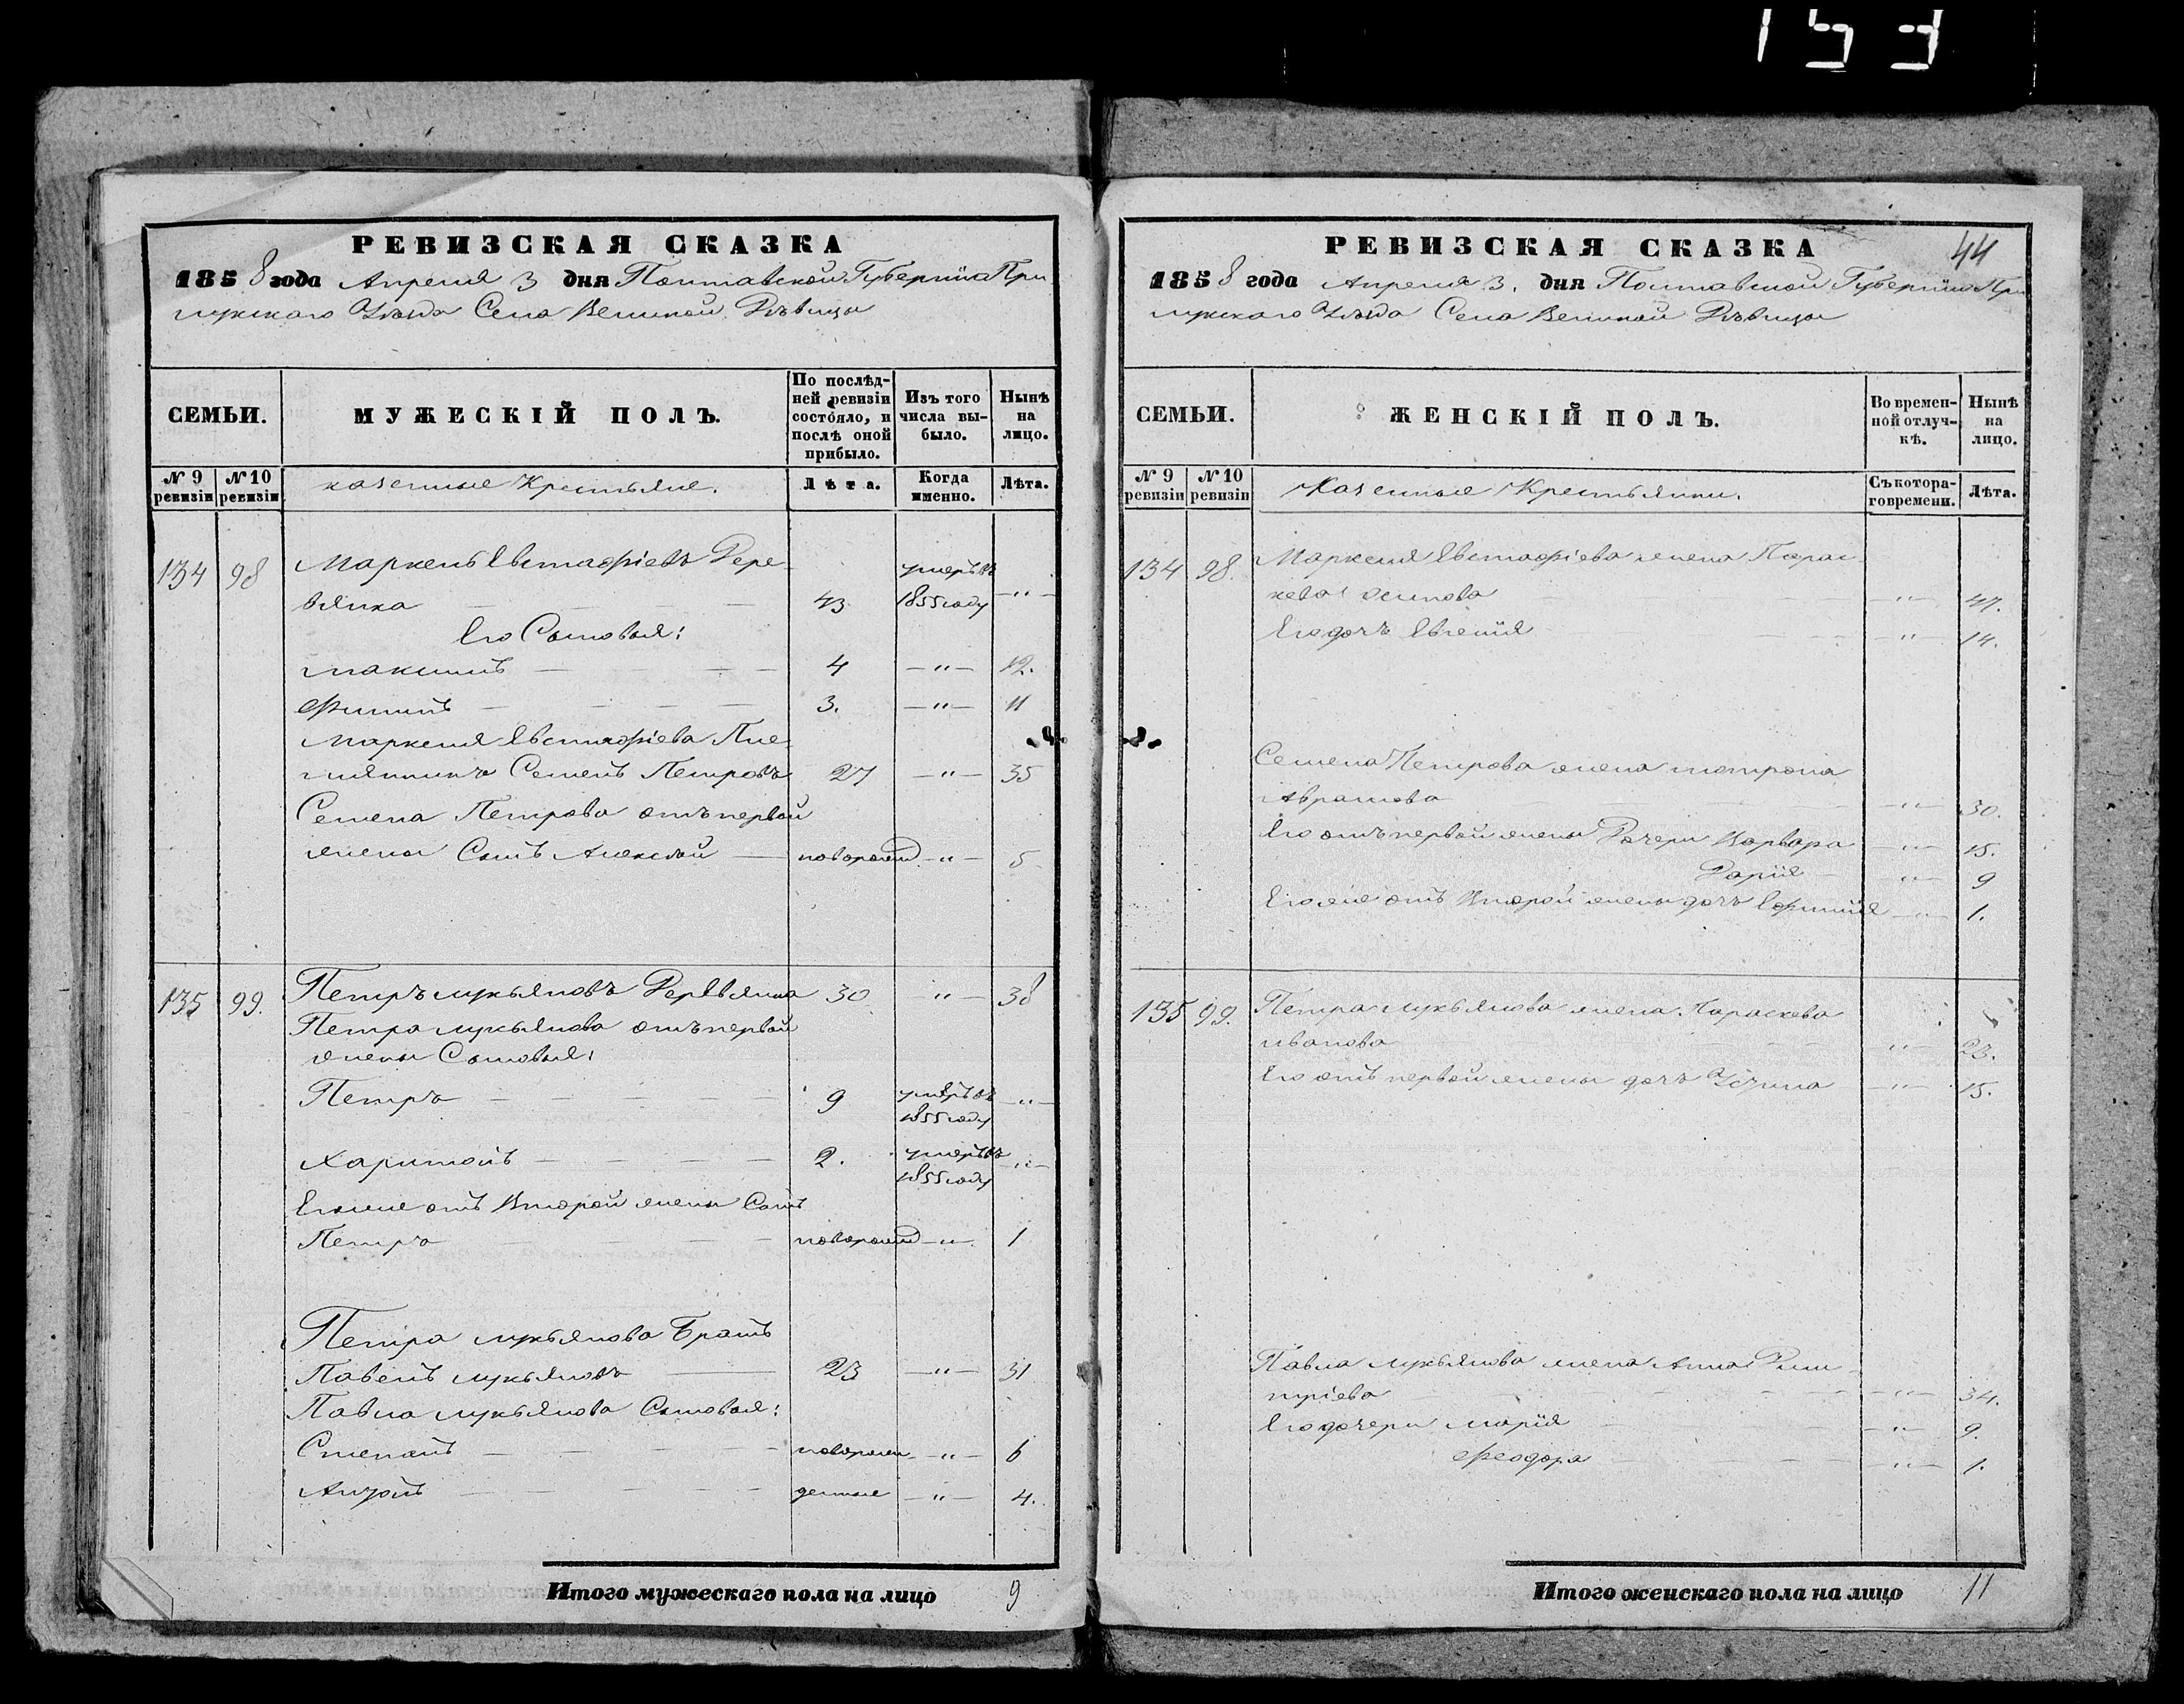 153
РЕВИЗСКАЯ СКАЗКА
1858 года Апреля 3 дня Полтавской Губерніи При
лукского Уѣзда Села Великой Дѣвицы
СЕМЬИ.
МУЖЕСКІЙ ПОЛЪ.
По послѣд-
ней ревизіи
состояло, и
послѣ оной
прибыло.
Изъ того
числа вы-
было.
Нынѣ
на
лицо.
№ 9 ревизіи
№ 10 ревизіи
казенные Крестьяне.
Лѣта.
Когда
именно.
Лѣта.
134 98 Маркелъ Евстафіевъ Дере умеръ въ
вянка 43 1855 году — " —
Его Сыновья:
Максимъ 4 — " — 12.
Филипъ 3. — " — 11
Маркела Евстафіева Пле
мянникъ Семенъ Петровъ 27 — " — 35
Семена Петрова отъ первой
жены Сынъ Алексѣй новорожд — " — 5
135 99. Петръ Лукьяновъ Деревянка 30 — " — 38
Петра Лукьянова отъ первой
жены Сыновья:
Петръ 9 умеръ въ
1855 году — " —
Харитонъ 2. умеръ въ
1855 году — " —
Его же отъ Второй жены Сынъ
Петръ новорожд — " — 1
Петра Лукьянова Братъ
Павелъ Лукьяновъ 23 — " — 31
Павла Лукьянова Сыновья:
Степанъ новорож — " — 6
Антонъ денные — " — 4.
Итого мужескаго пола на лицо 9
РЕВИЗСКАЯ СКАЗКА 44
1858 года Апреля 3. дня Полтавской Губерніи При
лукского Уѣзда Села Великой Дѣвицы
СЕМЬИ.
ЖЕНСКІЙ ПОЛЪ.
Во времен-
ной отлуч-
кѣ.
Нынѣ
на
лицо.
№ 9 ревизіи
№ 10 ревизіи
Казенные Крестьянки.
Съ котора-
го времени.
Лѣта.
134 98. Маркела Евстафіева жена Парас
кева Осипова — " — 47.
Его дочь Евгенія — " — 14.
Семена Петрова жена Матрона
Аврамова — " — 30.
Его отъ первой жены Дочери Варвара — " — 15.
Дарія — " — 9
Его же отъ Второй жены дочь Ефимія — " — 1.
135 99. Петра Лукьянова жена Параскева
Иванова — " — 23.
Его отъ первой жены дочь Устина — " — 15.
Павла Лукьянова жена Анна Дми
тріева — " — 34.
Его дочери Марія — " — 9.
Феодора — " — 1.
Итого женскаго пола на лицо 11